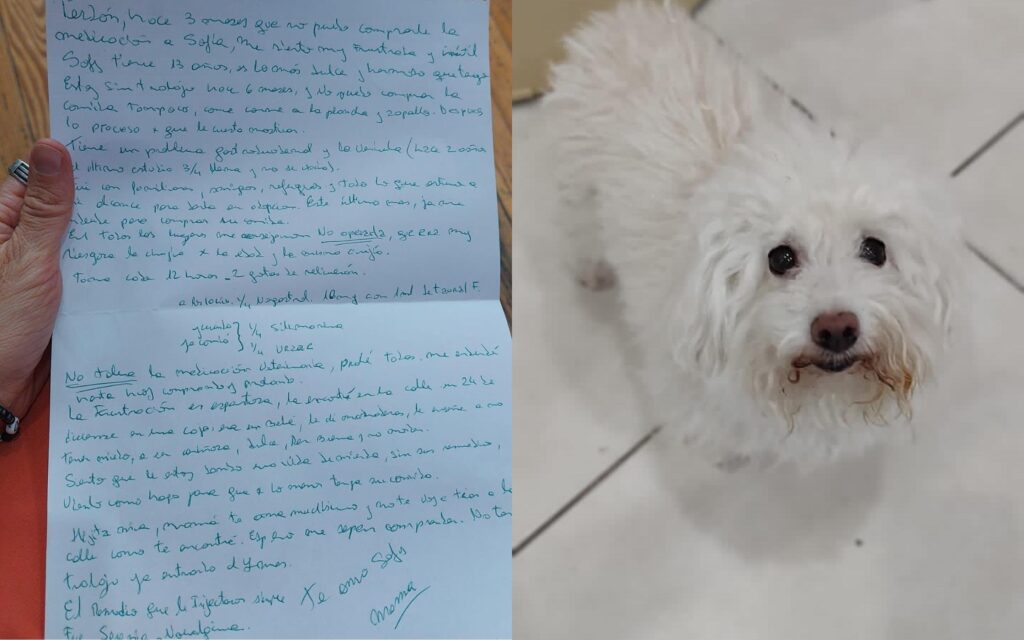 Perdón, hace 3 meses que no puedo comprarle la
medicación a Sofía, me siento muy frustrada y inútil
Sofy tiene 13 años, es lo más dulce y hermoso que tengo
Estoy sin trabajo hace 6 meses, y no puedo comprar la
comida tampoco, come carne a la plancha y zapallo. Después
lo proceso x que le cuesta masticar.
Tiene un problema gastrointestinal y la vesícula (hace 2 años
el último estudio 3/4 llena y no se vacía).
con familiares, amigos, refugios y todo lo que estuvo a
alcance para darla en adopción. Este último mes, ya me
para comprar su comida.
En todos los lugares me aconsejaron No operarla, que era muy
riesgosa la cirugía x la edad y la misma cirugía.
Toma cada 12 horas 2 gotas de
1/4 10mg con 1ml F.
ya comió } 1/4 Silimarina
1/4 URZAC
No tolera la medicación veterinaria, probé todas. me entendió
hasta hoy comprando y probando.
La frustración es espantosa, la encontré en la calle un 24 de
diciembre en una caja, era un bebé, le di mamaderas, le enseñé a no
tener miedo, a ser cariñosa, dulce, ser buena y no
Siento que le estoy dando una vida de mierda, sin sus remedios,
viendo como hago para que x lo menos tenga su comida.
Hijita mía, mamá te ama muchísimo y no te voy a tirar a la
calle como te encontré. Espero me sepan comprender. No
trabajo ya entrando
El Remedio que le inyectaron siempre
Fue
Te amo Sofy
Mamá